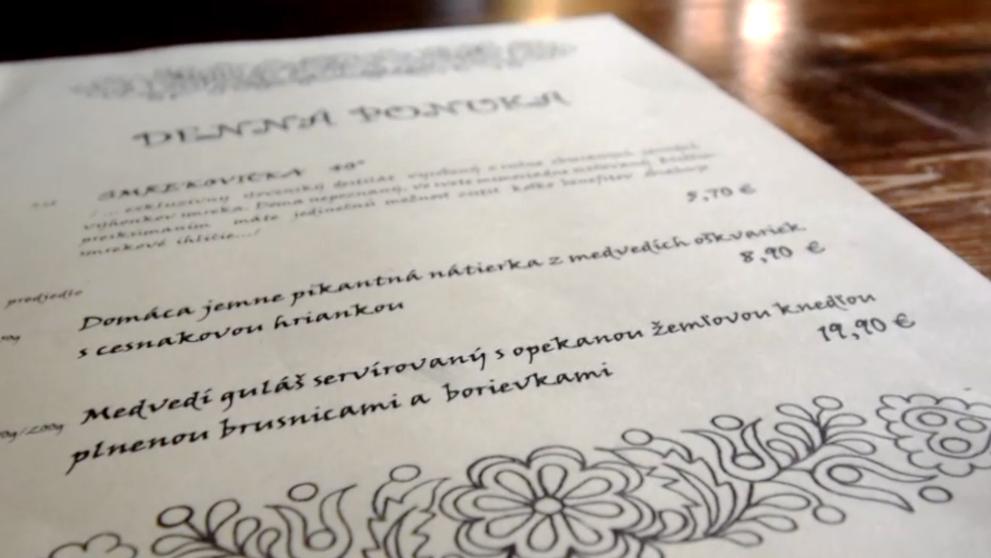 DENNÁ PONUKA
SMREKOVIČKA 40°
exkluzívny slovenský destilát vyrobený z
výhonkov smreka. Doma nepoznaný, vo svete
preskúmaním máte jedinečnú možnosť zistiť koľko benefitov
smrekové ihličie...!
5,70 €
predjedlo
Domáca jemne pikantná nátierka z medvedích oškvariek
8,90 €
s cesnakovou hriankou
Medvedí guláš servírovaný s opekanou žemľovou knedľou
19,90 €
plnenou brusnicami a borievkami